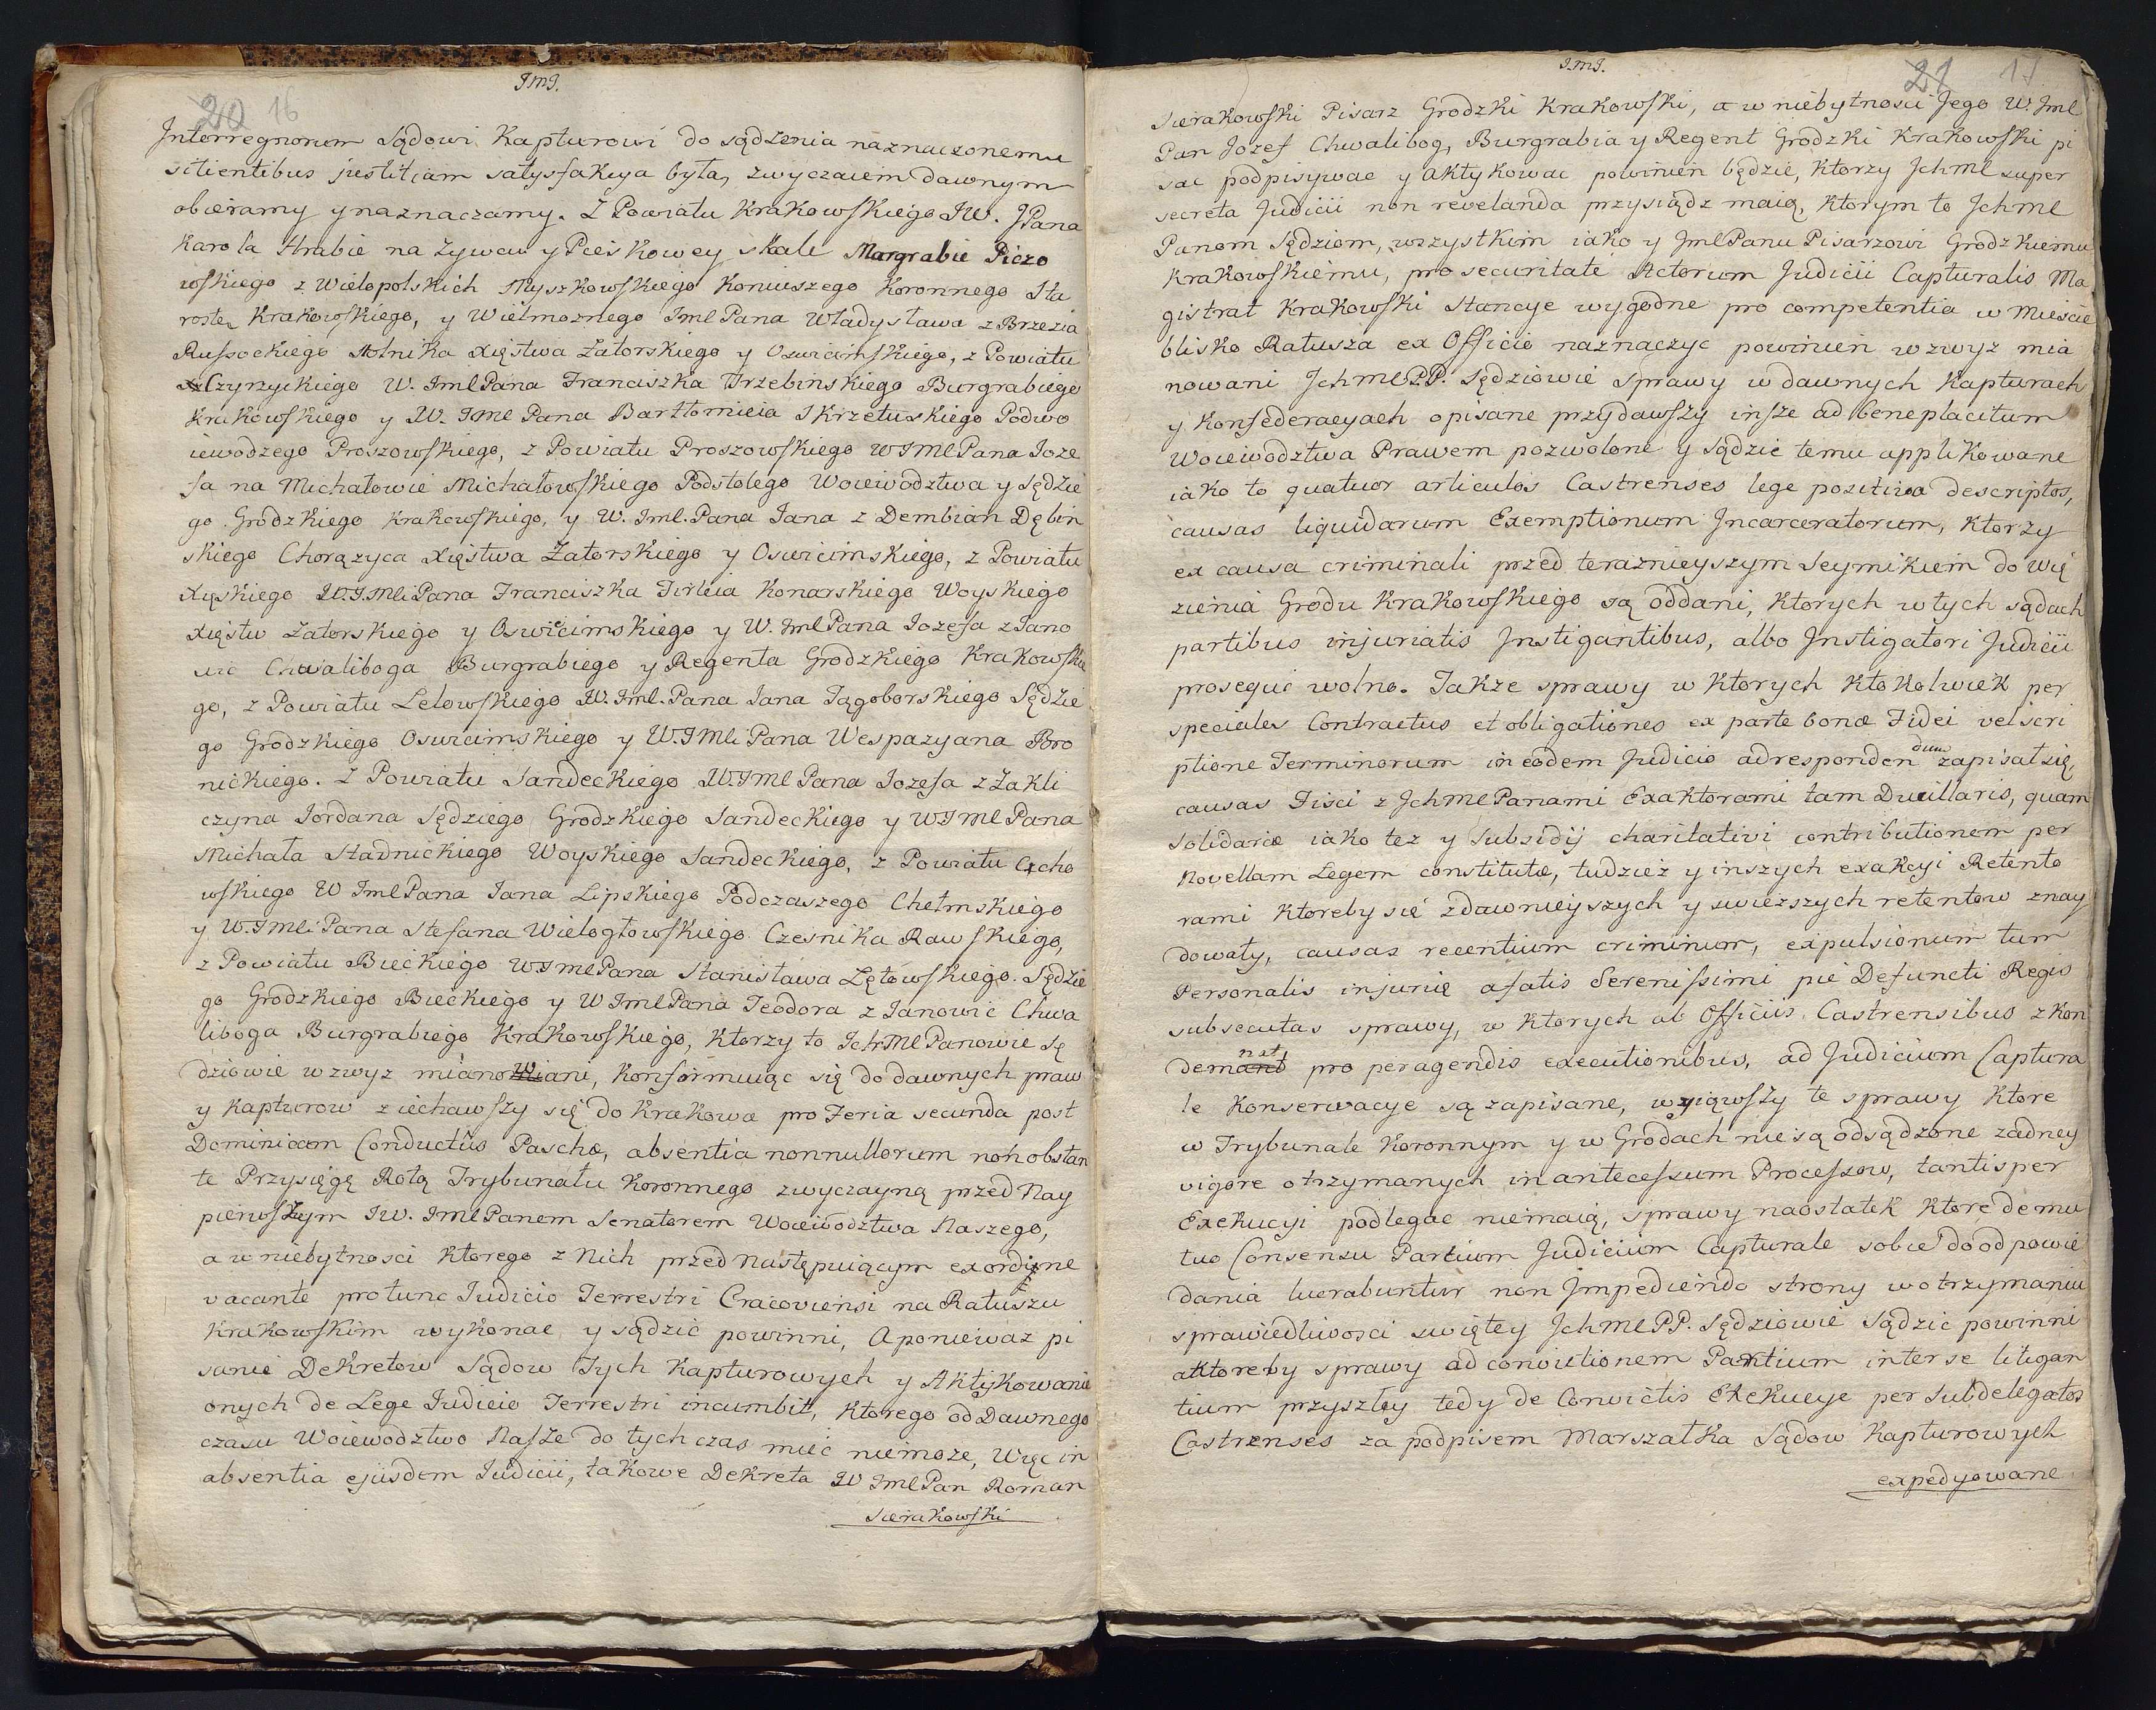 JMJ.
20 16
Interregnorum Sądowi Kapturowi do sądzenia naznaczonemu
sitientibus justitiam satysfakcya była, zwyczaiem dawnym
obieramy y naznaczamy. Z Powiatu Krakowskiego JW. JPana
Karola Hrabie na Zywcu y Pieskowey skale Margrabie Piczo
wskiego z Wielopolskich Myszkowskiego Koniuszego Koronnego Sta
rostę Krakowskiego, y Wielmoznego JmlPana Władysława z Brzezia
Russockiego Stolnika Xięstwa Zatorskiego y Oswiecimskiego, z Powiatu
Czyrzyckiego W. JmlPana Franciszka Trzebinskiego Burgrabiego
Krakowskiego y W. JMl Pana Bartłomieia Skrzetuskiego Podwo
iewodzego Proszowskiego, z Powiatu Proszowskiego WJMlPana Joze
fa na Michałowie Michałowskiego Podstolego Woiewodztwa y Sędzie
go Grodzkiego Krakowskiego, y W. Jml. Pana Jana z Dembian Dębin
skiego Chorązyca Xięstwa Zatorskiego y Oswiecimskiego, z Powiatu
Xięskiego W.JMliPana Franciszka Firleia Konarskiego Woyskiego
Xięstw Zatorskiego y Oswiecimskiego y W. JmlPana Jozefa z Jano
wic Chwaliboga Burgrabiego y Regenta Grodzkiego Krakowskie
go, z Powiatu Lelowskiego W. Jml. Pana Jana Jagoborskiego Sędzie
go Grodzkiego Oswiecimskiego y W.JMli Pana Wespazyana Bro
nickiego. Z Powiatu Sandeckiego WJMl Pana Jozefa z Zakli
czyna Jordana Sędziego Grodzkiego Sandeckiego y WJMl Pana
Michała Stadnickiego Woyskiego Sandeckiego, z Powiatu Czcho
wskiego W JmlPana Jana Lipskiego Podczaszego Chełmskiego
y W.JMli Pana Stefana Wielogłowskiego Czesnika Rawskiego,
z Powiatu Bieckiego WJmlPana Stanisława Lętowskiego. Sędzie
go Grodzkiego Bieckiego y W JmlPana Teodora z Janowic Chwa
liboga Burgrabiego Krakowskiego, Ktorzy to JchMlPanowie Sę
dziowie wzwyz mianowiani, Konformuiąc się do dawnych praw
y Kapturow ziechawszy się do Krakowa pro Feria secunda post
Dominicam Conductûs Paschæ, absentia nonnullorum non obstan
te Przysięgę Rotą Trybunału Koronnego zwyczayną przed Nay
pierwszym JW. JmlPanem Senatorem Woiewodztwa Naszego,
a w niebytnosci Ktorego z Nich przed następuiącym ex ordine
vacante pro tunc Judicio Terrestri Cracoviensi na Ratuszu
Krakowskim wykonac y sądzic powinni, A poniewaz pi
sanie Dekretow Sądow Tych Kapturowych y Aktykowanie
onych de Lege Judicio Terrestri incumbit, Ktorego od Dawnego
czasu Woiewodztwo Nasze do tych czas miec niemoze, Więc in
absentia ejusdem Judicii, takowe Dekreta W JmlPan Roman
Sierakowski
J.MJ.
21
Sierakowski Pisarz Grodzki Krakowski, a w niebytnosci Jego W. Jml
Pan Jozef Chwalibog, Burgrabia y Regent Grodzki Krakowski pi
sac podpisywac y Aktykowac powinien będzie, Ktorzy Jchml super
secreta Judicii non revelanda przysiądz maią, Ktorym to Jchml
Panom Sędziom, wszystkim iako y JmlPanu Pisarzowi Grodzkiemu
Krakowskiemu, pro securitate Actorum Judicii Capturalis Ma
gistrat Krakowski Stancye wygodne pro competentia w Miescie
blisko Ratusza ex Officio naznaczyc powinien wzwyz mia
nowani JchMlPP. Sędziowie Sprawy w dawnych Kapturach
y Konfederacyach opisane przydawszy insze ad beneplacitum
Woiewodztwa Prawem pozwolone y sądzic temu applikowane
iako to quatuor articulos Castrenses lege positiva descriptos,
causas liquidarum Exemptionum Jncarceratorum, Ktorzy
ex causa criminali przed teraznieyszym Seymikiem do Wię
zienia Grodu Krakowskiego są oddani, Ktorych w tych sądach
partibus injuriatis Jnstigantibus, albo Jnstigatori Judicii
prosequi wolno. Takze sprawy w Ktorych Ktokolwiek per
speciales Contractus et obligationes ex parte bonæ Fidei vel scri
ptione Terminorum in eodem Judicio ad respondendum zapisał się,
causas Fisci z JchMlPanami Exaktorami tam Ducillaris, quam
Solidariæ iako tez y Subsidij charitativi contributionem per
Novellam Legem constitutæ, tudziez y inszych exakcyi Retento
rami Ktoreby się z dawnieyszych y swieższych retentow znay
dowały, causas recentium criminum, expulsionum tum
Personalis injurię a fatis Serenissimi piè Defuncti Regis
subsecutas sprawy, w Ktorych ab Officiis Castrensibus z Kon
demnat pro peragendis executionibus, ad Judicium Captura
le Konserwacye są zapisane, wyiąwszy te sprawy Ktore
w Trybunale Koronnym y w Grodach nie są odsądzone zadney
vigore otrzymanych in antecessum Processow, tantisper
Exekucyi podlegac niemaią, sprawy naostatek Ktore de mu
tuo Consensu Partium Judicium Capturale sobie do odpowie
dania lucrabuntur non Jmpediendo strony w otrzymaniu
sprawiedliwosci swiętey JchMlPP. Sędziowie Sądzic powinni
a Ktoreby sprawy ad convictionem Partium inter se litigan
tium przyszły tedy de Convictis Exekucye per Subdelegatos
Castrenses za podpisem Marszałka Sądow Kapturowych
expedyowane